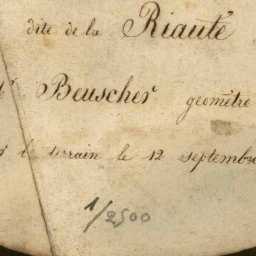 dite de la Riauté
Mr Beuscher geomètre
le terrain le 12 septembre
1/2500